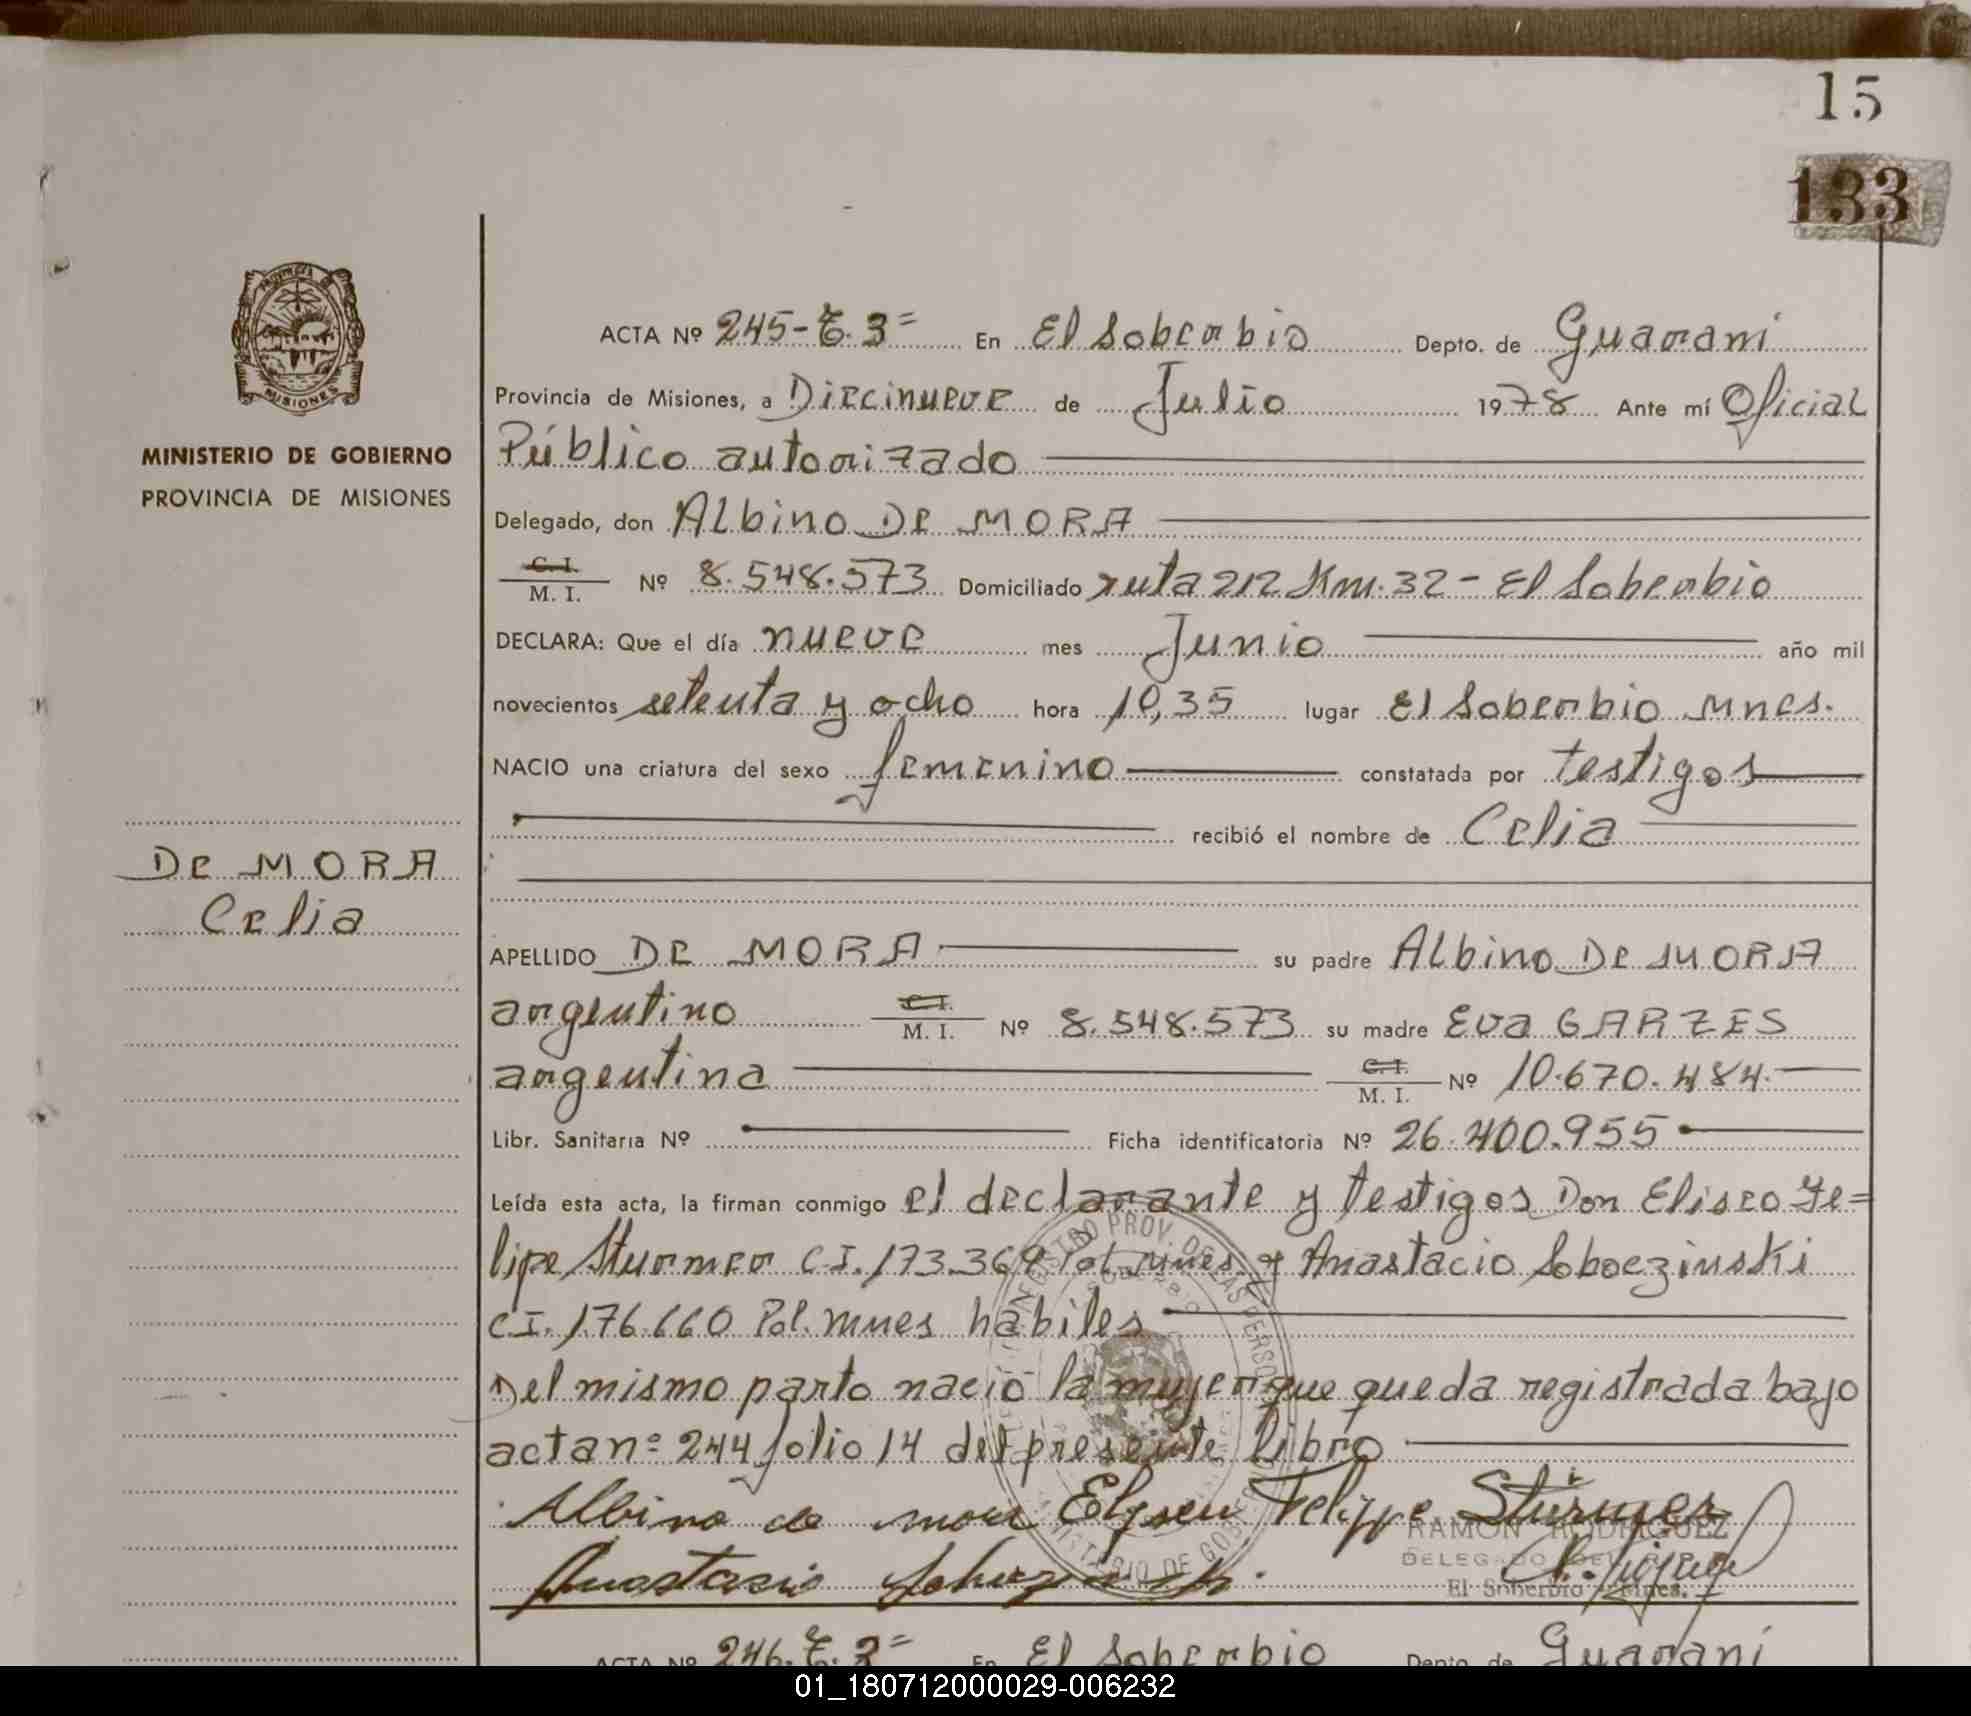 15
133
PROVINCIA DE
MISIONES
MINISTERIO DE GOBIERNO
PROVINCIA DE MISIONES
DE MORA
Celia
ACTA Nº 245-T.3= En El Soberbio Depto. de Guaraní
Provincia de Misiones, a Diecinueve de Julio 1978 Ante mí Oficial
Público autorizado
Delegado, don Albino DE MORA
C. I.
M. I. Nº 8.548.573 Domiciliado ruta 212 Km. 32 - El Soberbio
DECLARA: Que el día nueve mes Junio año mil
novecientos setenta y ocho hora 10,35 lugar El Soberbio Mnes.
NACIO una criatura del sexo femenino constatada por testigos
recibió el nombre de Celia
APELLIDO DE MORA su padre Albino DE MORA
argentino C. I. M. I. Nº 8.548.573 su madre Eva GARZES
argentina C. I. M. I. Nº 10.670.484.
Libr. Sanitaria Nº Ficha identificatoria Nº 26.400.955
Leída esta acta, la firman conmigo el declarante y testigos Don Eliseo Fe=
lipe Sturmer C.I. 173.369 Pol. Mnes. y Anastacio Soboczinski
CI. 176.660 Pol. Mnes hábiles
Del mismo parto nació la mujer que queda registrada bajo
acta nº 244 folio 14 del presente libro
Albino de mora Elyseu Felippe Stürmer
Anastasio
RAMON RODRIGUEZ
DELEGADO DEL R.P.P.
El Soberbio - Mnes.
REGISTRO PROV. DE LAS PERSONAS
MINISTERIO DE GOBIERNO
ACTA Nº 246-T.3= En El Soberbio Depto. de Guaraní
01_180712000029-006232